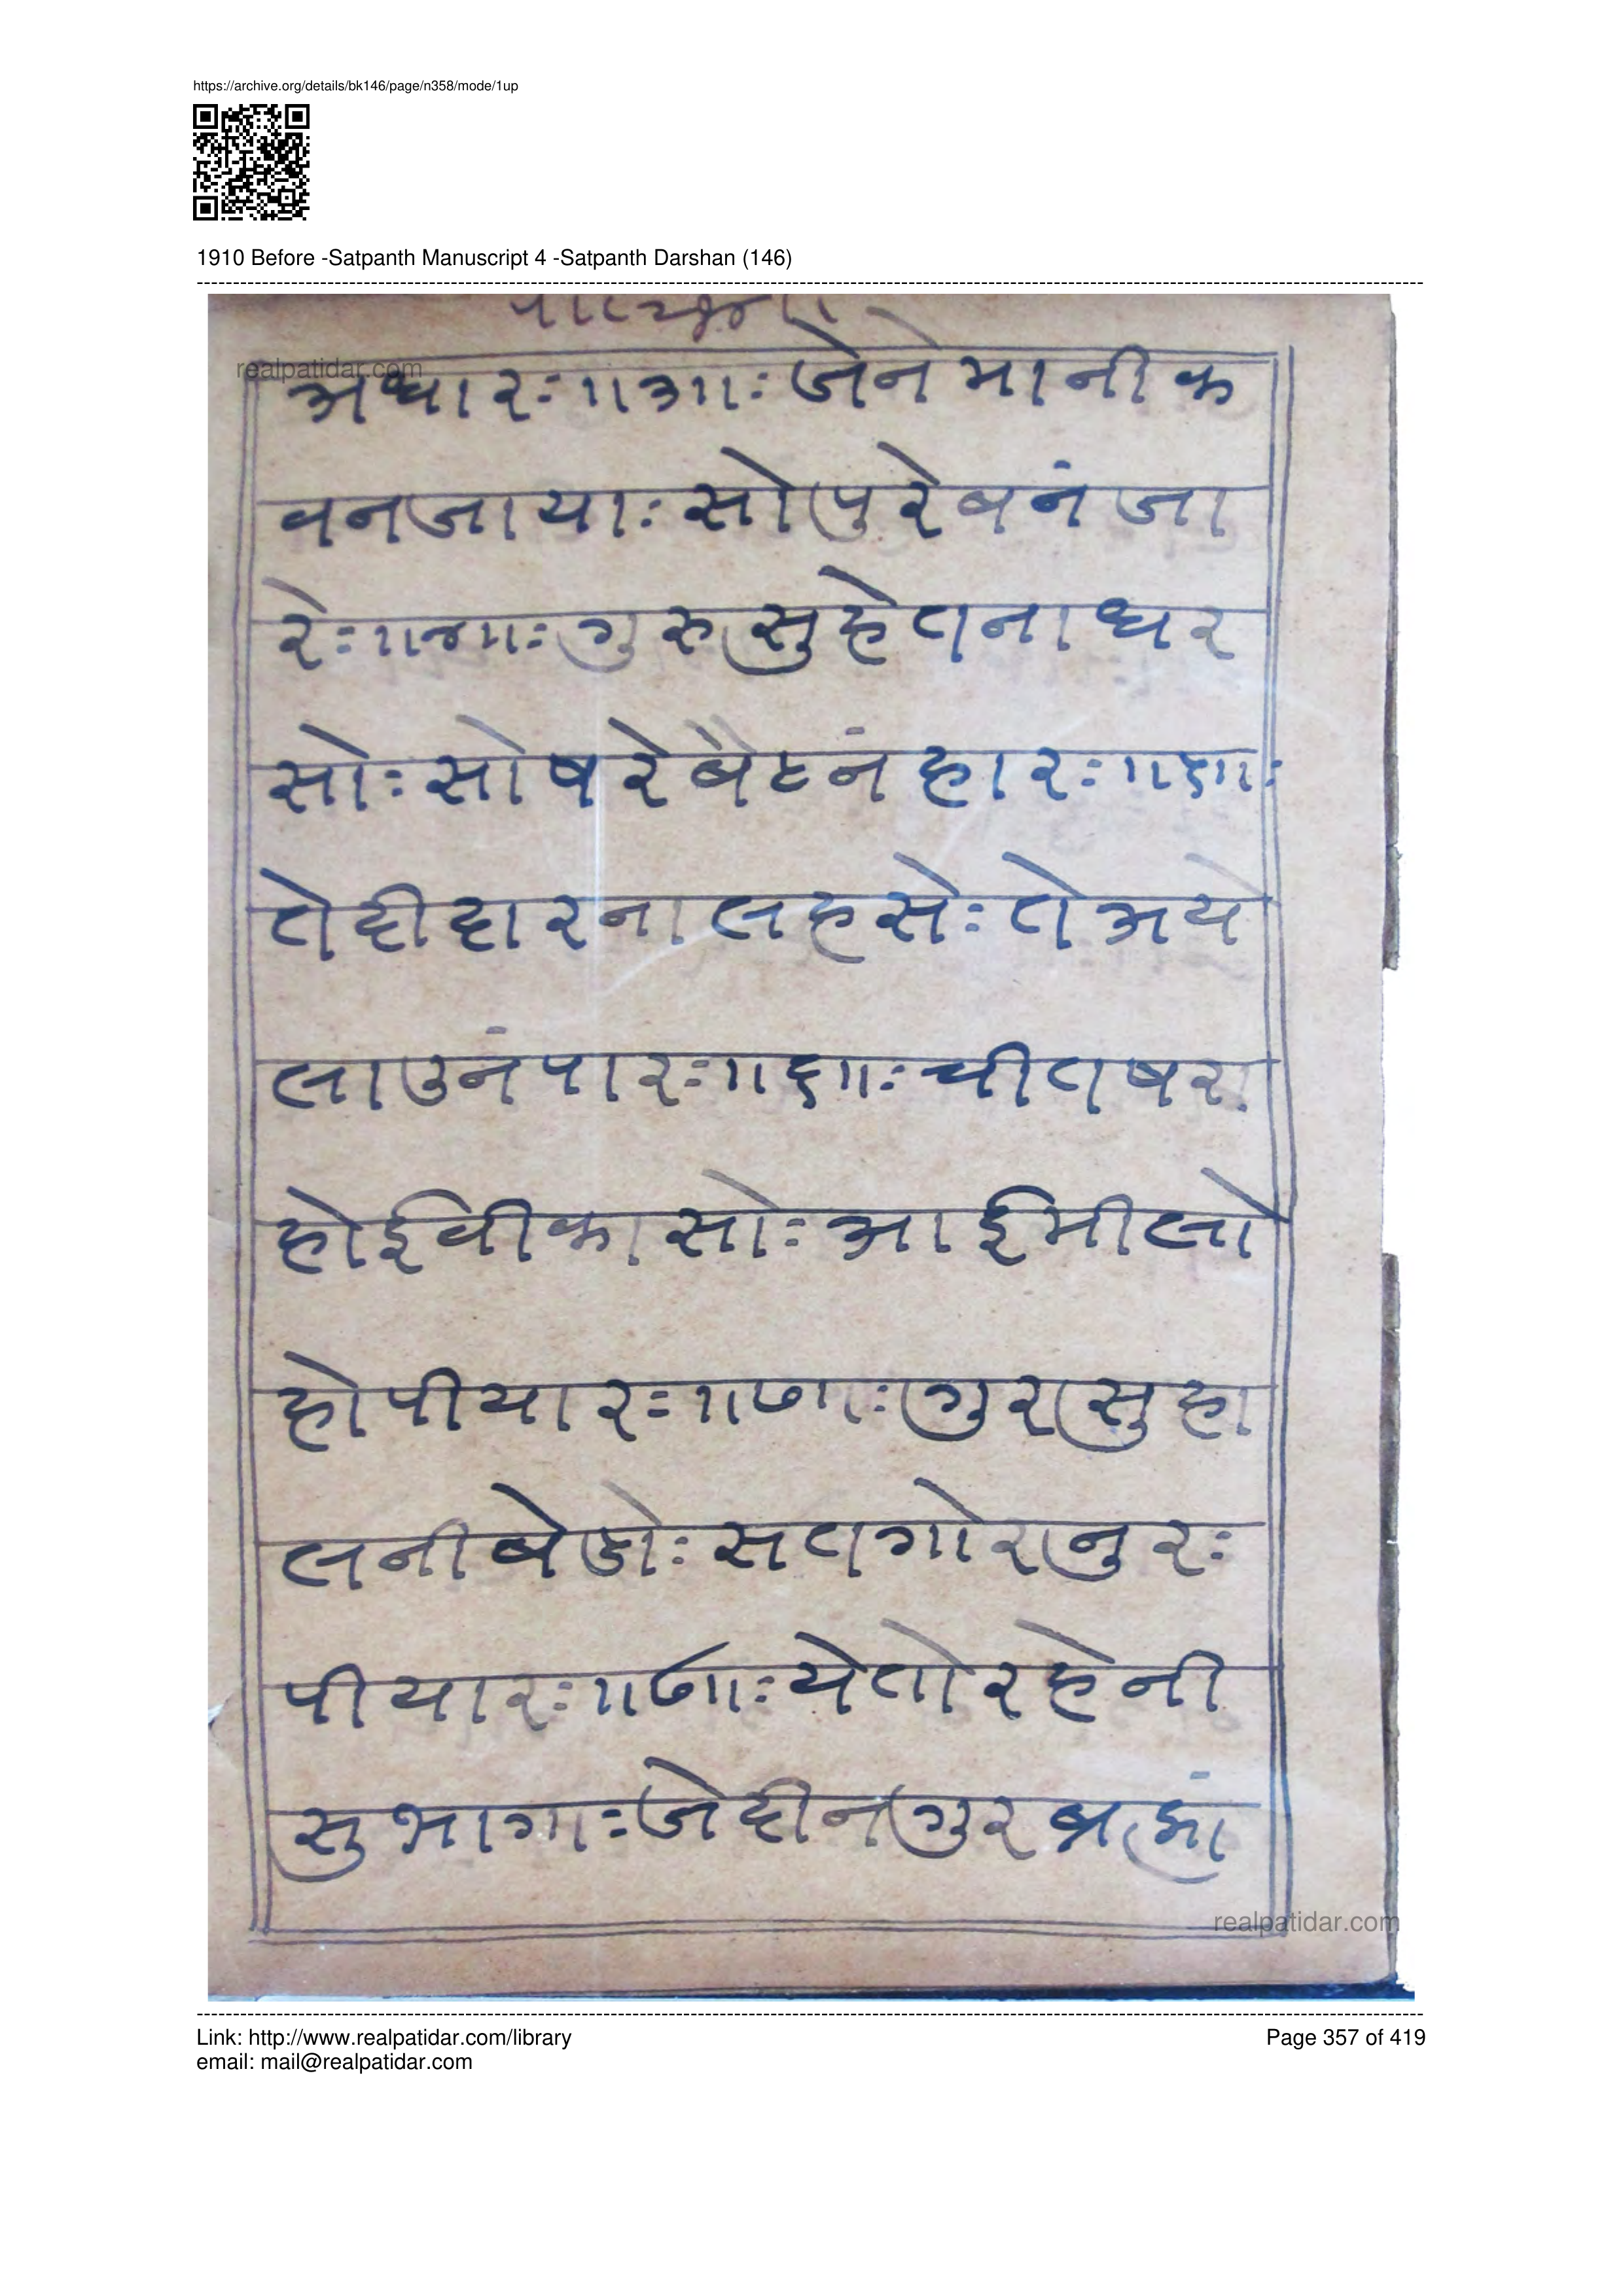 https://archive.org/details/bk146/page/n358/mode/1up
1910 Before -Satpanth Manuscript 4 -Satpanth Darshan (146)
realpatidar.com
अधार:॥३॥: जेने मानीक
वनजाया: सो पुरे बनंजा
रे:॥४॥: गुरु सुहेतना धर
सो: सो षरे बैठनं हार:॥५॥:
ते दीदार ना लहसे: ते अये
ला उनं पार:॥६॥: चीत षरा
होई वीकासो: आई मीलो
हो पीयार:॥७॥: गुर सुहा
लनी बेडो: सत गोर नुर:
पीयार:॥८॥: येतो रहेनी
सु भागा: जे दीन गुर ब्रह्मां
realpatidar.com
Link: http://www.realpatidar.com/library
Page 357 of 419
email: mail@realpatidar.com